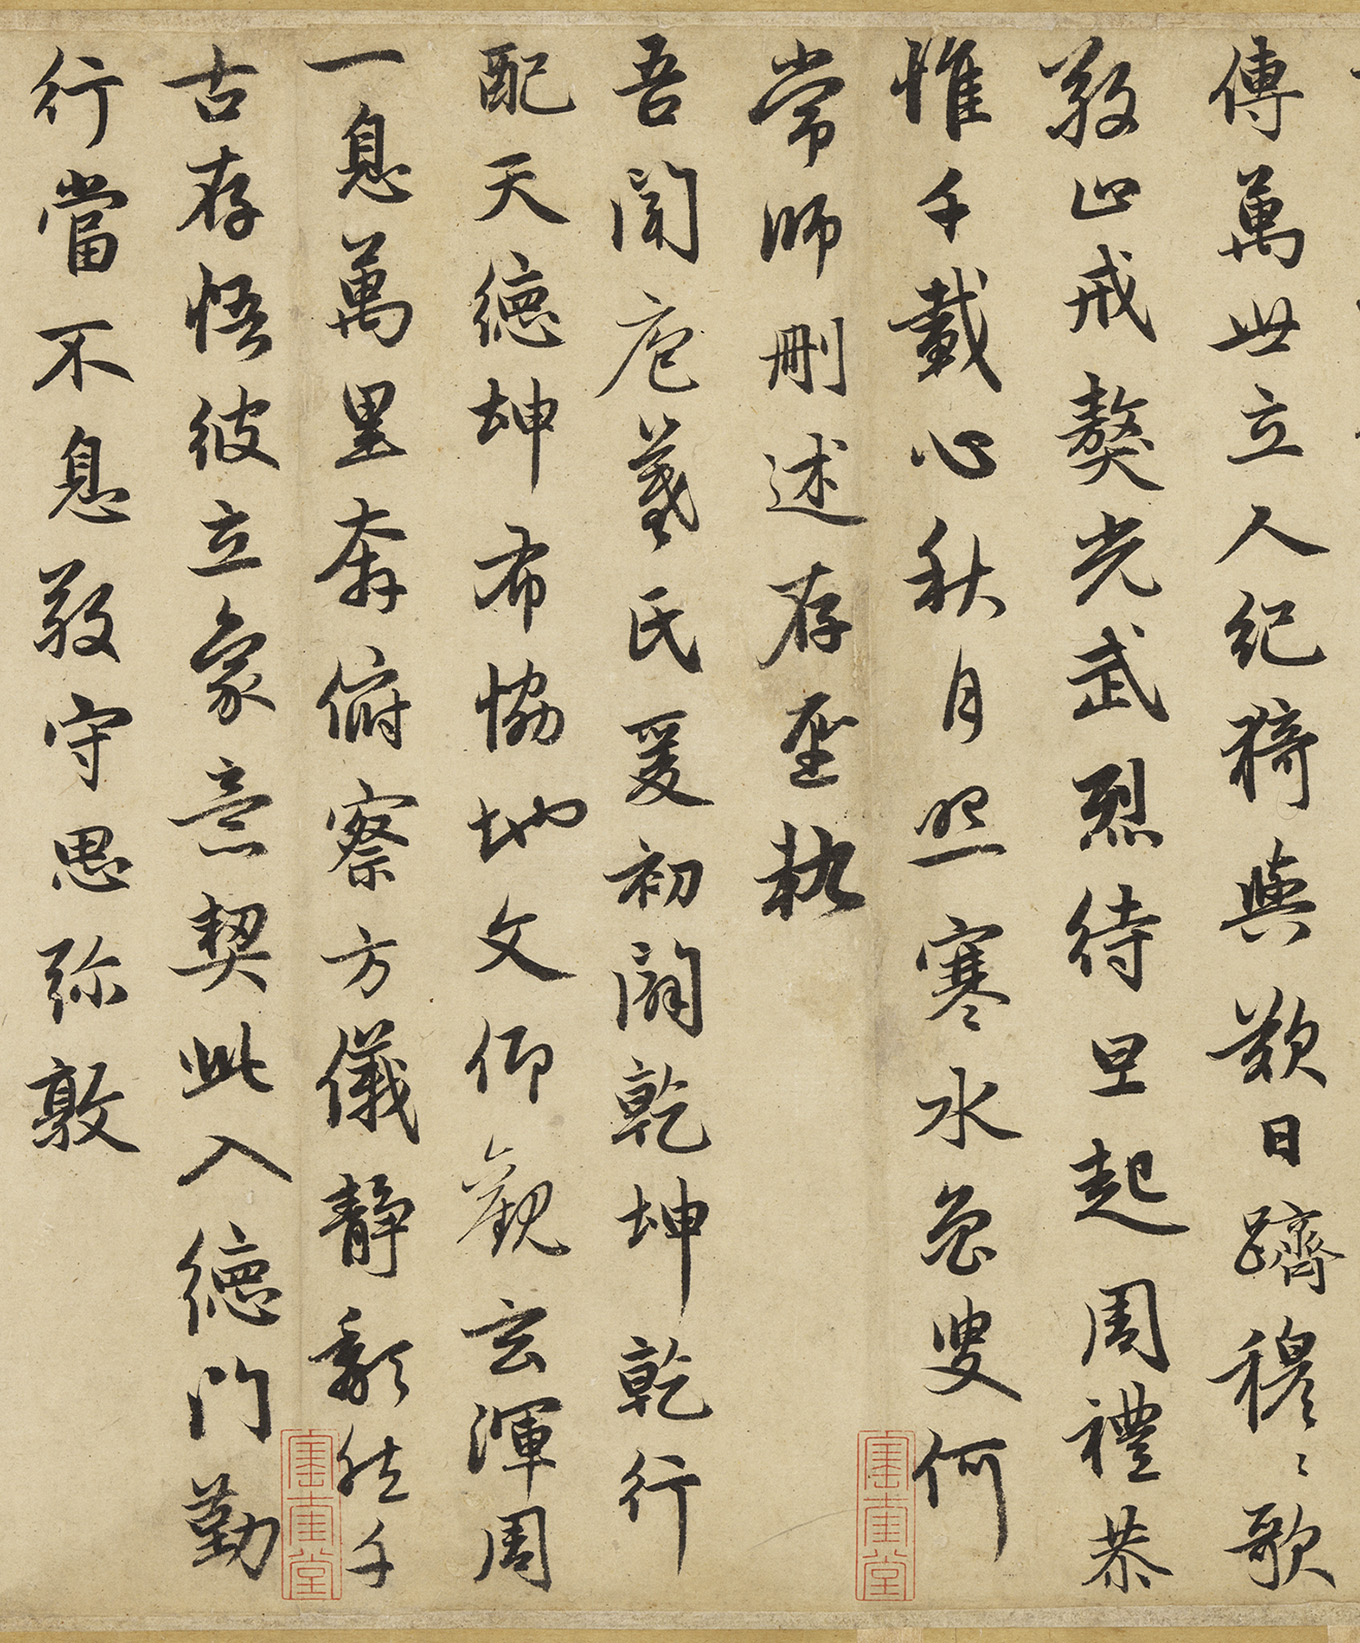 傳萬世立人紀猗與歎日躋穆〻歌
敬止戒獒光武烈待旦起周禮恭
惟千載心秋月照寒水魯叟何
常師刪述存聖軌
吾聞庖羲氏爰初闢乾坤乾行
配天德坤布協地文仰觀玄渾周
一息萬里奔俯察方儀靜頹然千
古存悟彼立象意契此入德門勤
行當不息敬守思弥敦